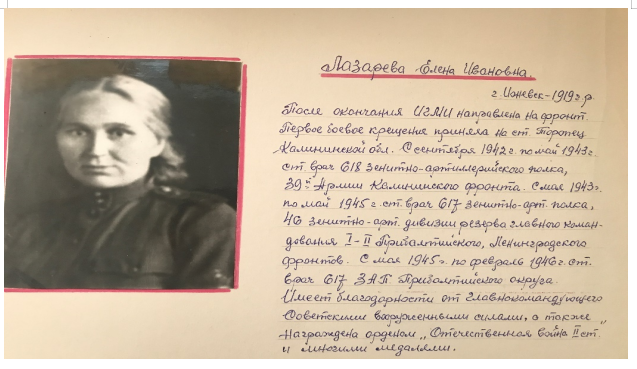 Лазарева Елена Ивановна.
г. Ижевск - 1919 г.р.
После окончания ИГМИ направлена на фронт.
Первое боевое крещение приняла на ст. Торопец
Калининской обл. С сентября 1942 г. по май 1943 г.
ст. врач 618 зенитно-артиллерийского полка,
39й Армии Калининского фронта. С мая 1943 г.
по май 1945 г. ст. врач 617 зенитно-арт. полка,
46 зенитно-арт. дивизии резерва главного коман-
дования I-II Прибалтийского, Ленинградского
фронтов. С мая 1945 г. по февраль 1946 г. ст.
врач 617 ЗАП Прибалтийского округа.
Имеет благодарности от главнокомандующего
Советскими вооруженными силами, а также
награждена орденом „Отечественная война II ст.
и многими медалями.